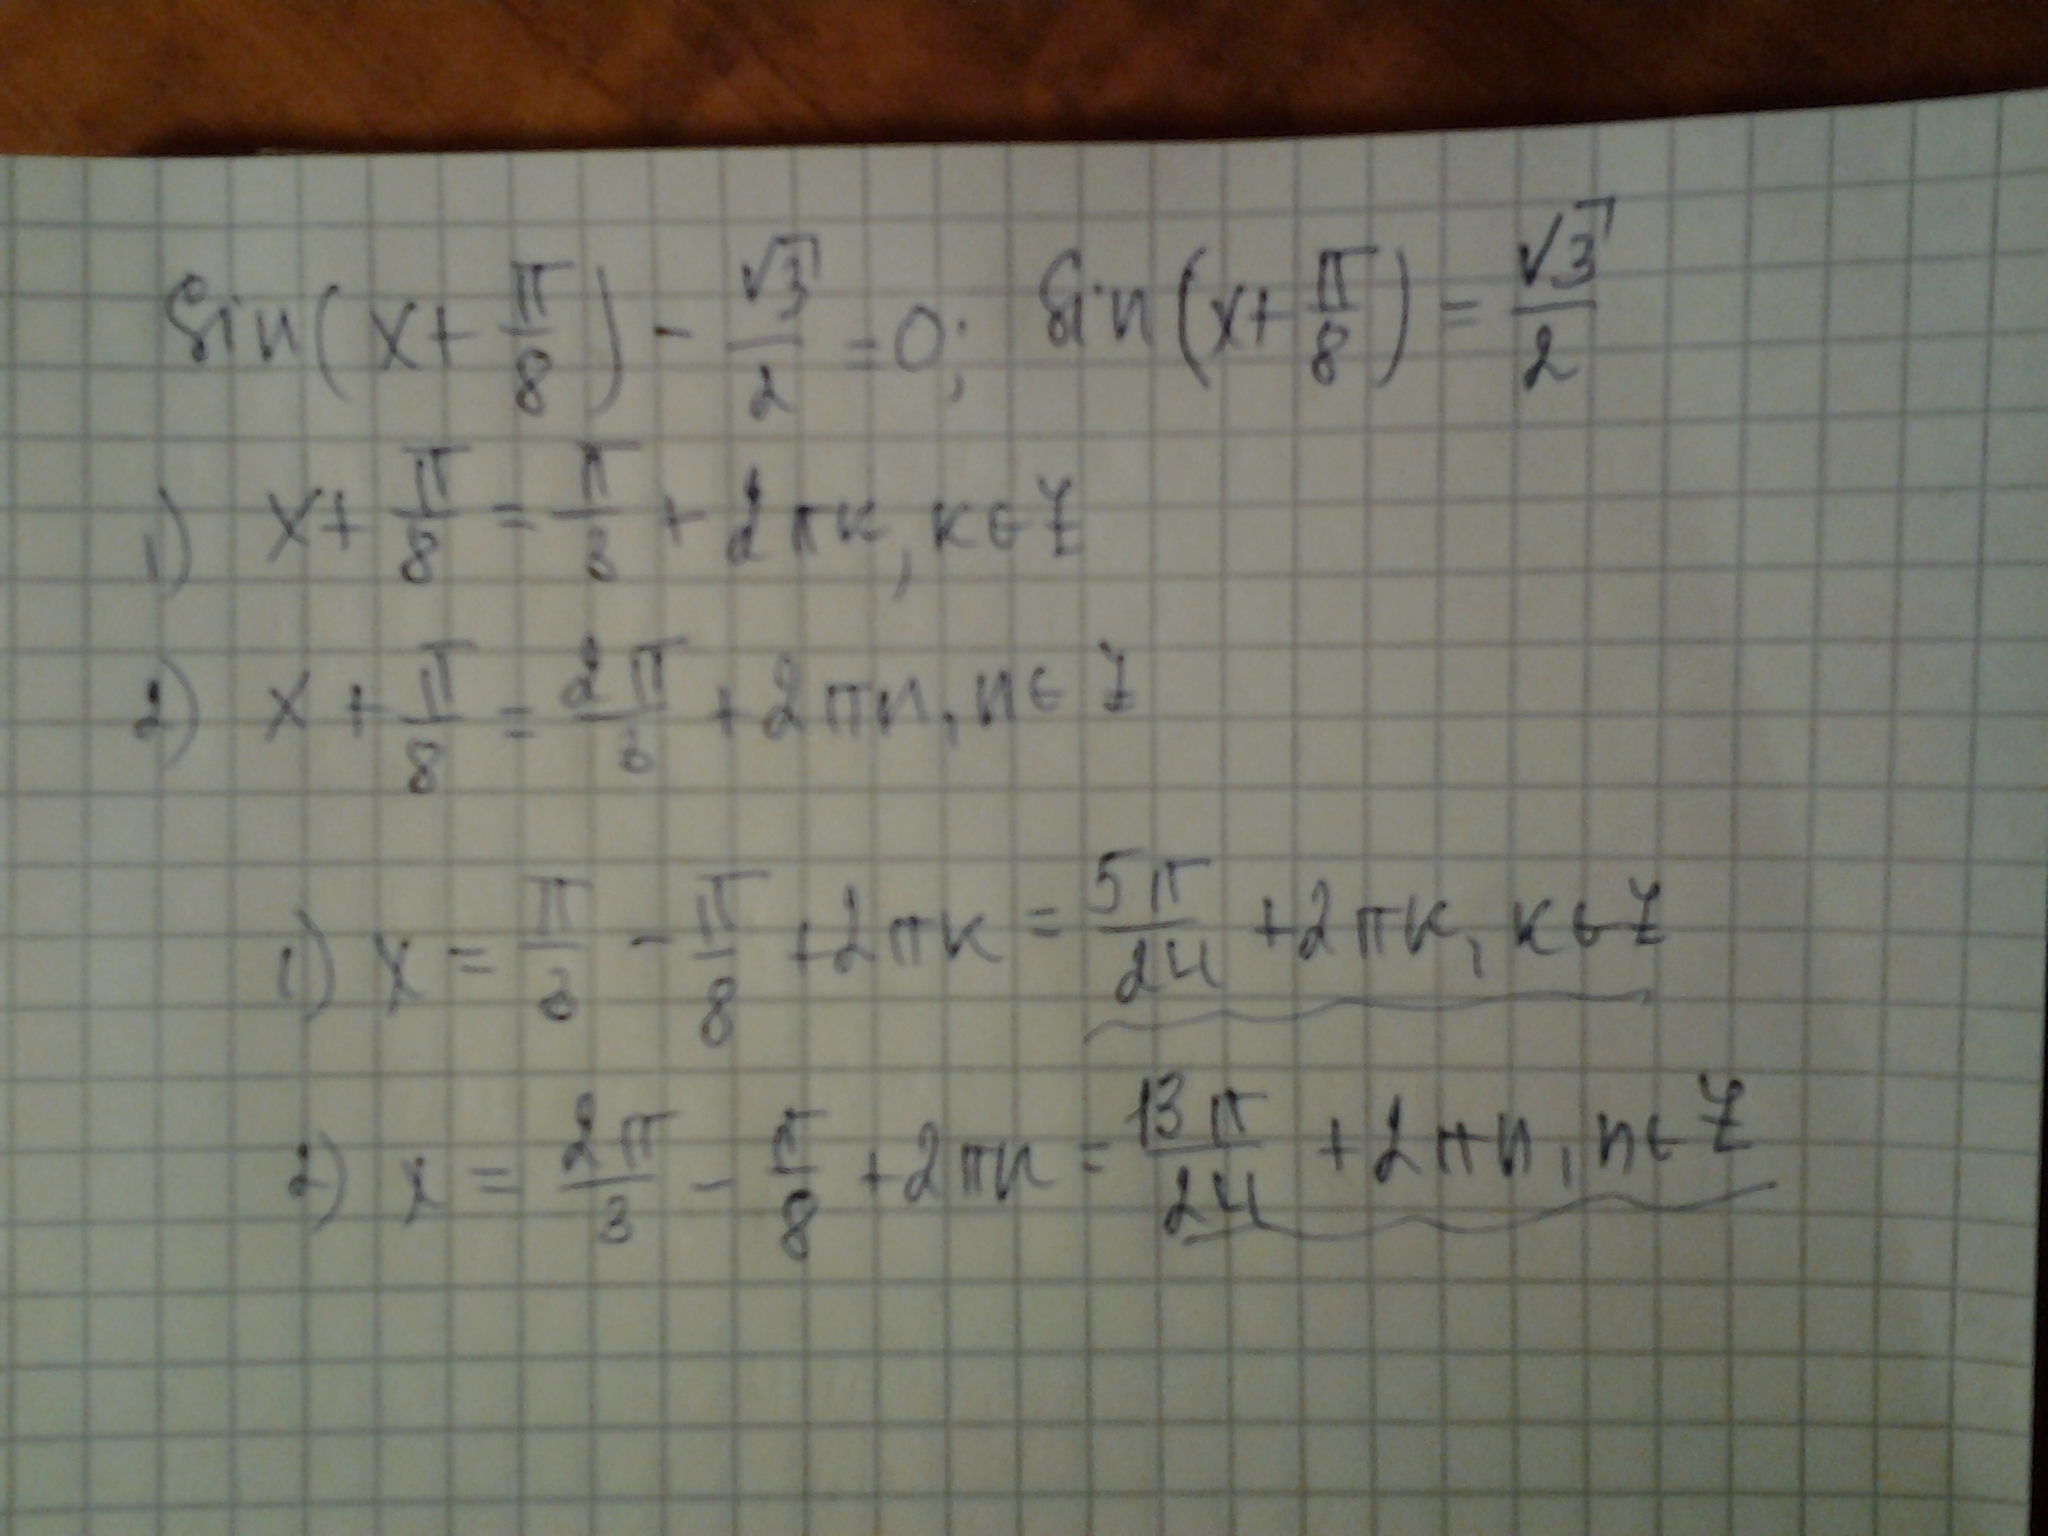 Sin(x+π/8) - √3/2 = 0; Sin(x+π/8) = √3/2
1) x+π/8 = π/3 + 2πk, k∈Z
2) x+π/8 = 2π/3 + 2πn, n∈Z
1) x = π/3 - π/8 + 2πk = 5π/24 + 2πk, k∈Z
2) x = 2π/3 - π/8 + 2πn = 13π/24 + 2πn, n∈Z